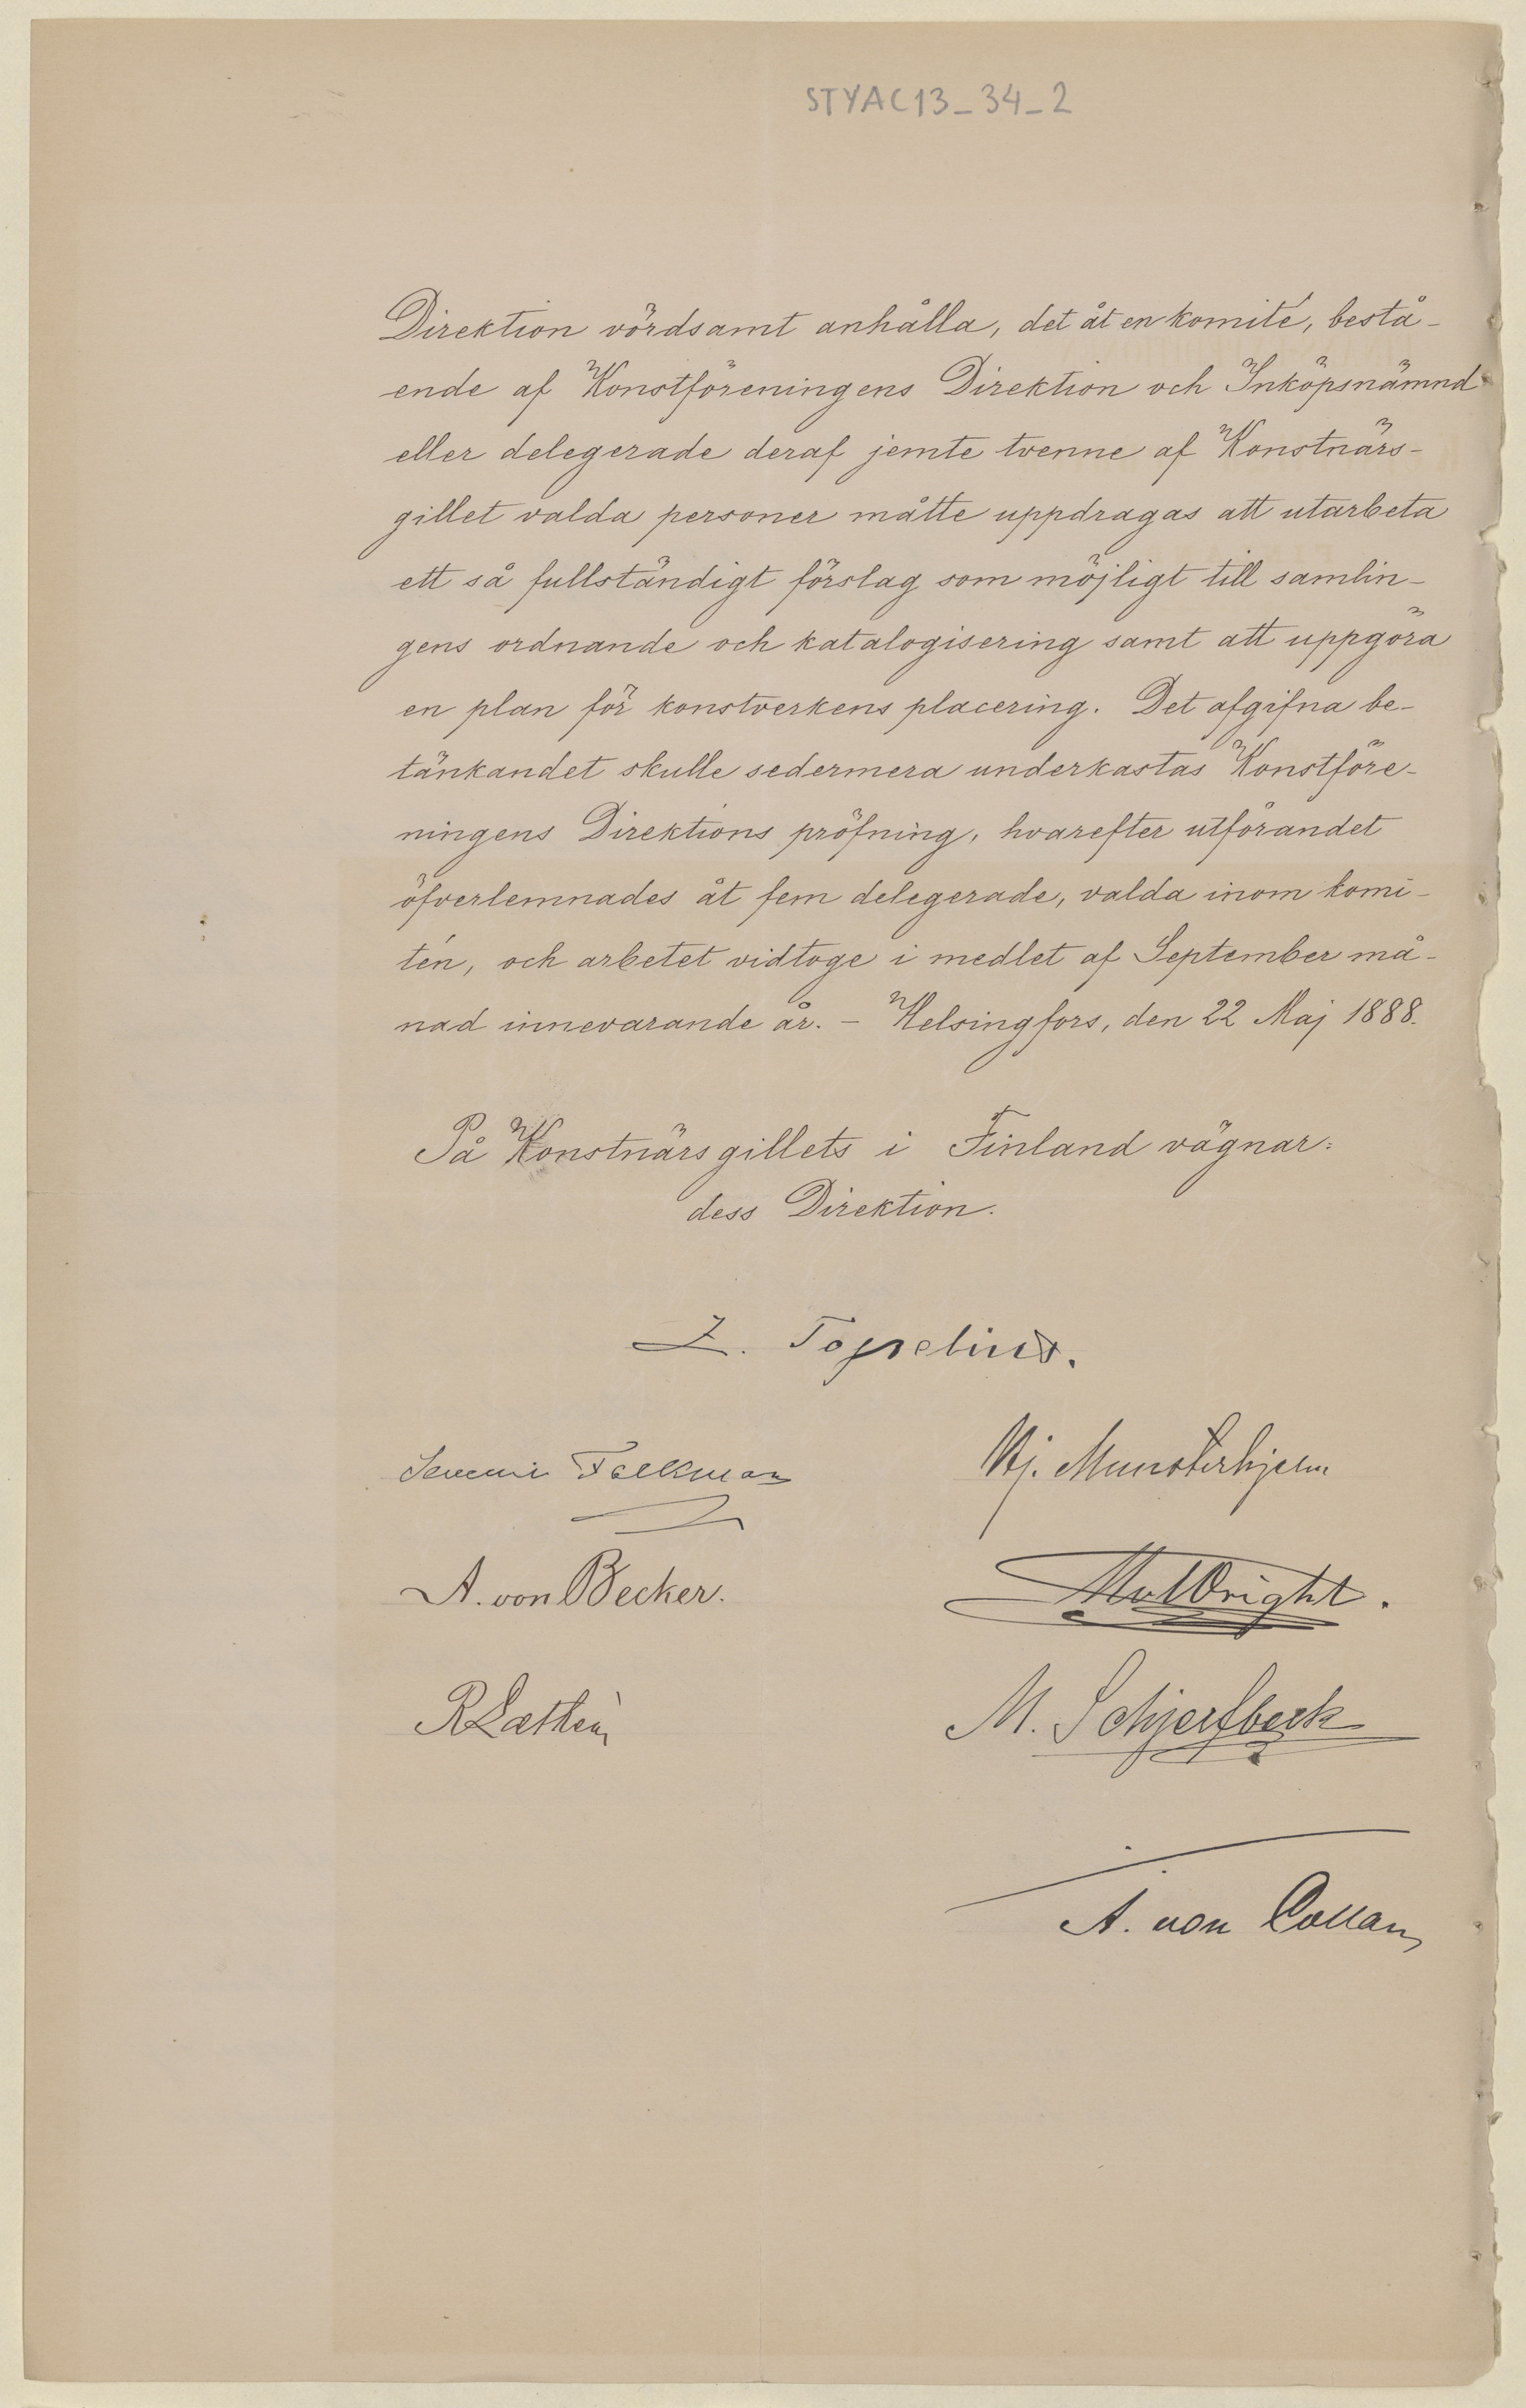 STYAC13_34_2
Direktion vördsamt anhålla, det åt en komité, bestå-
ende af Konstföreningens Direktion och Inköpsnämnd
eller delegerade deraf jemte tvenne af Konstnärs-
gillet valda personer måtte uppdragas att utarbeta
ett så fullständigt förslag som möjligt till samlin-
gens ordnande och katalogisering samt att uppgöra
en plan för konstverkens placering. Det afgifna be-
tänkandet skulle sedermera underkastas Konstföre-
ningens Direktions pröfning, hvarefter utförandet
öfverlemnades åt fem delegerade, valda inom komi-
tén, och arbetet vidtoge i medlet af September må-
nad innevarande år. - Helsingfors, den 22 Maj 1888.
På Konstnärsgillets i Finland vägnar:
dess Direktion.
Z. Topelius.
Severin Falkman
Hj. Munsterhjelm
A. von Becker.
MvWright.
M. Schjerfbeck
A. von Collan